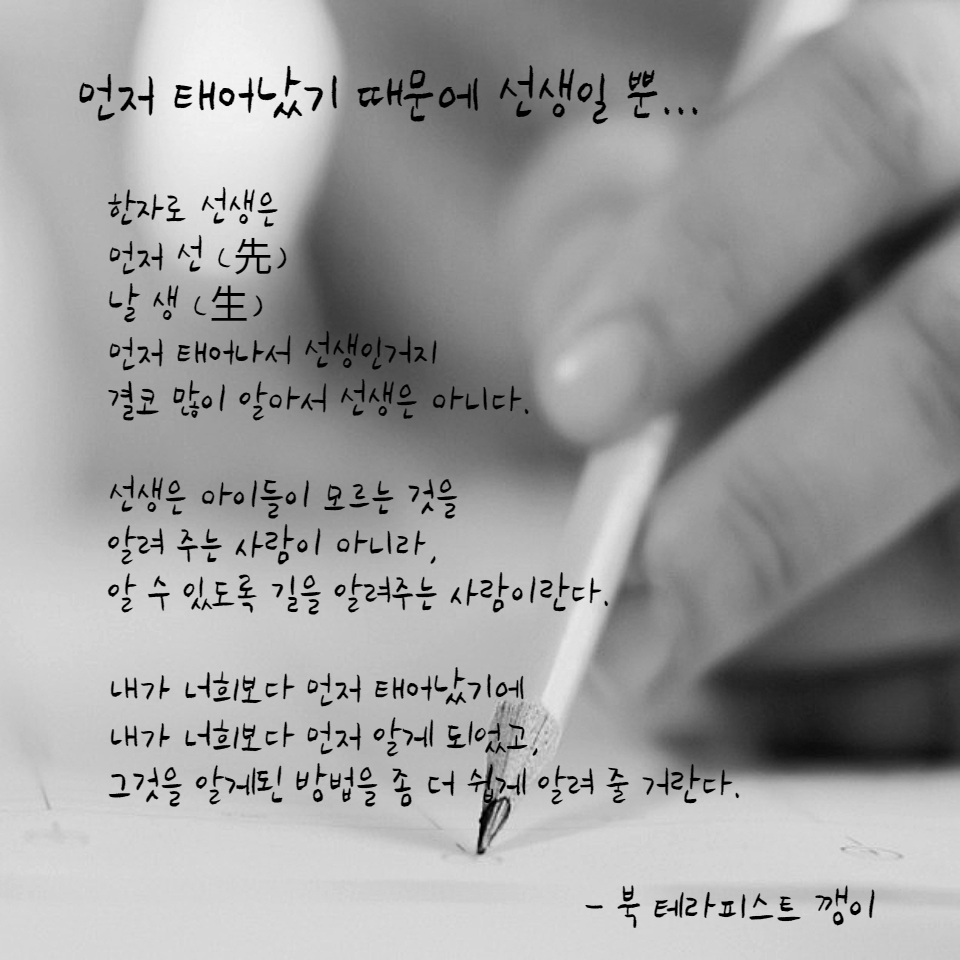 먼저 태어났기 때문에 선생일 뿐...
한자로 선생은
먼저 선 (先)
날 생 (生)
먼저 태어나서 선생인거지
결코 많이 알아서 선생은 아니다.
선생은 아이들이 모르는 것을
알려 주는 사람이 아니라,
알 수 있도록 길을 알려주는 사람이란다.
내가 너희보다 먼저 태어났기에
내가 너희보다 먼저 알게 되었고,
그것을 알게된 방법을 좀 더 쉽게 알려 줄 거란다.
- 북 테라피스트 깽이